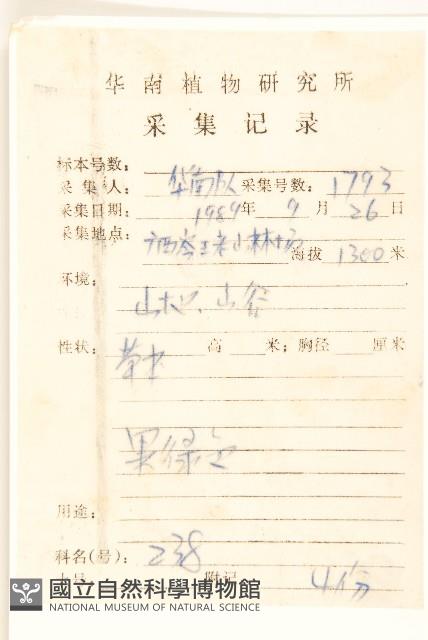 华南植物研究所
采集记录
标本号数:
采集人: 华南队 采集号数: 1793
采集日期: 1989年 9月 26日
采集地点: 广西 林场
海拔 1300米
环境:
山 山谷
性状: 草本 高 米; 胸径 厘米
果绿色
用途:
科名(号): 238
附记 4份
國立自然科學博物館
NATIONAL MUSEUM OF NATURAL SCIENCE